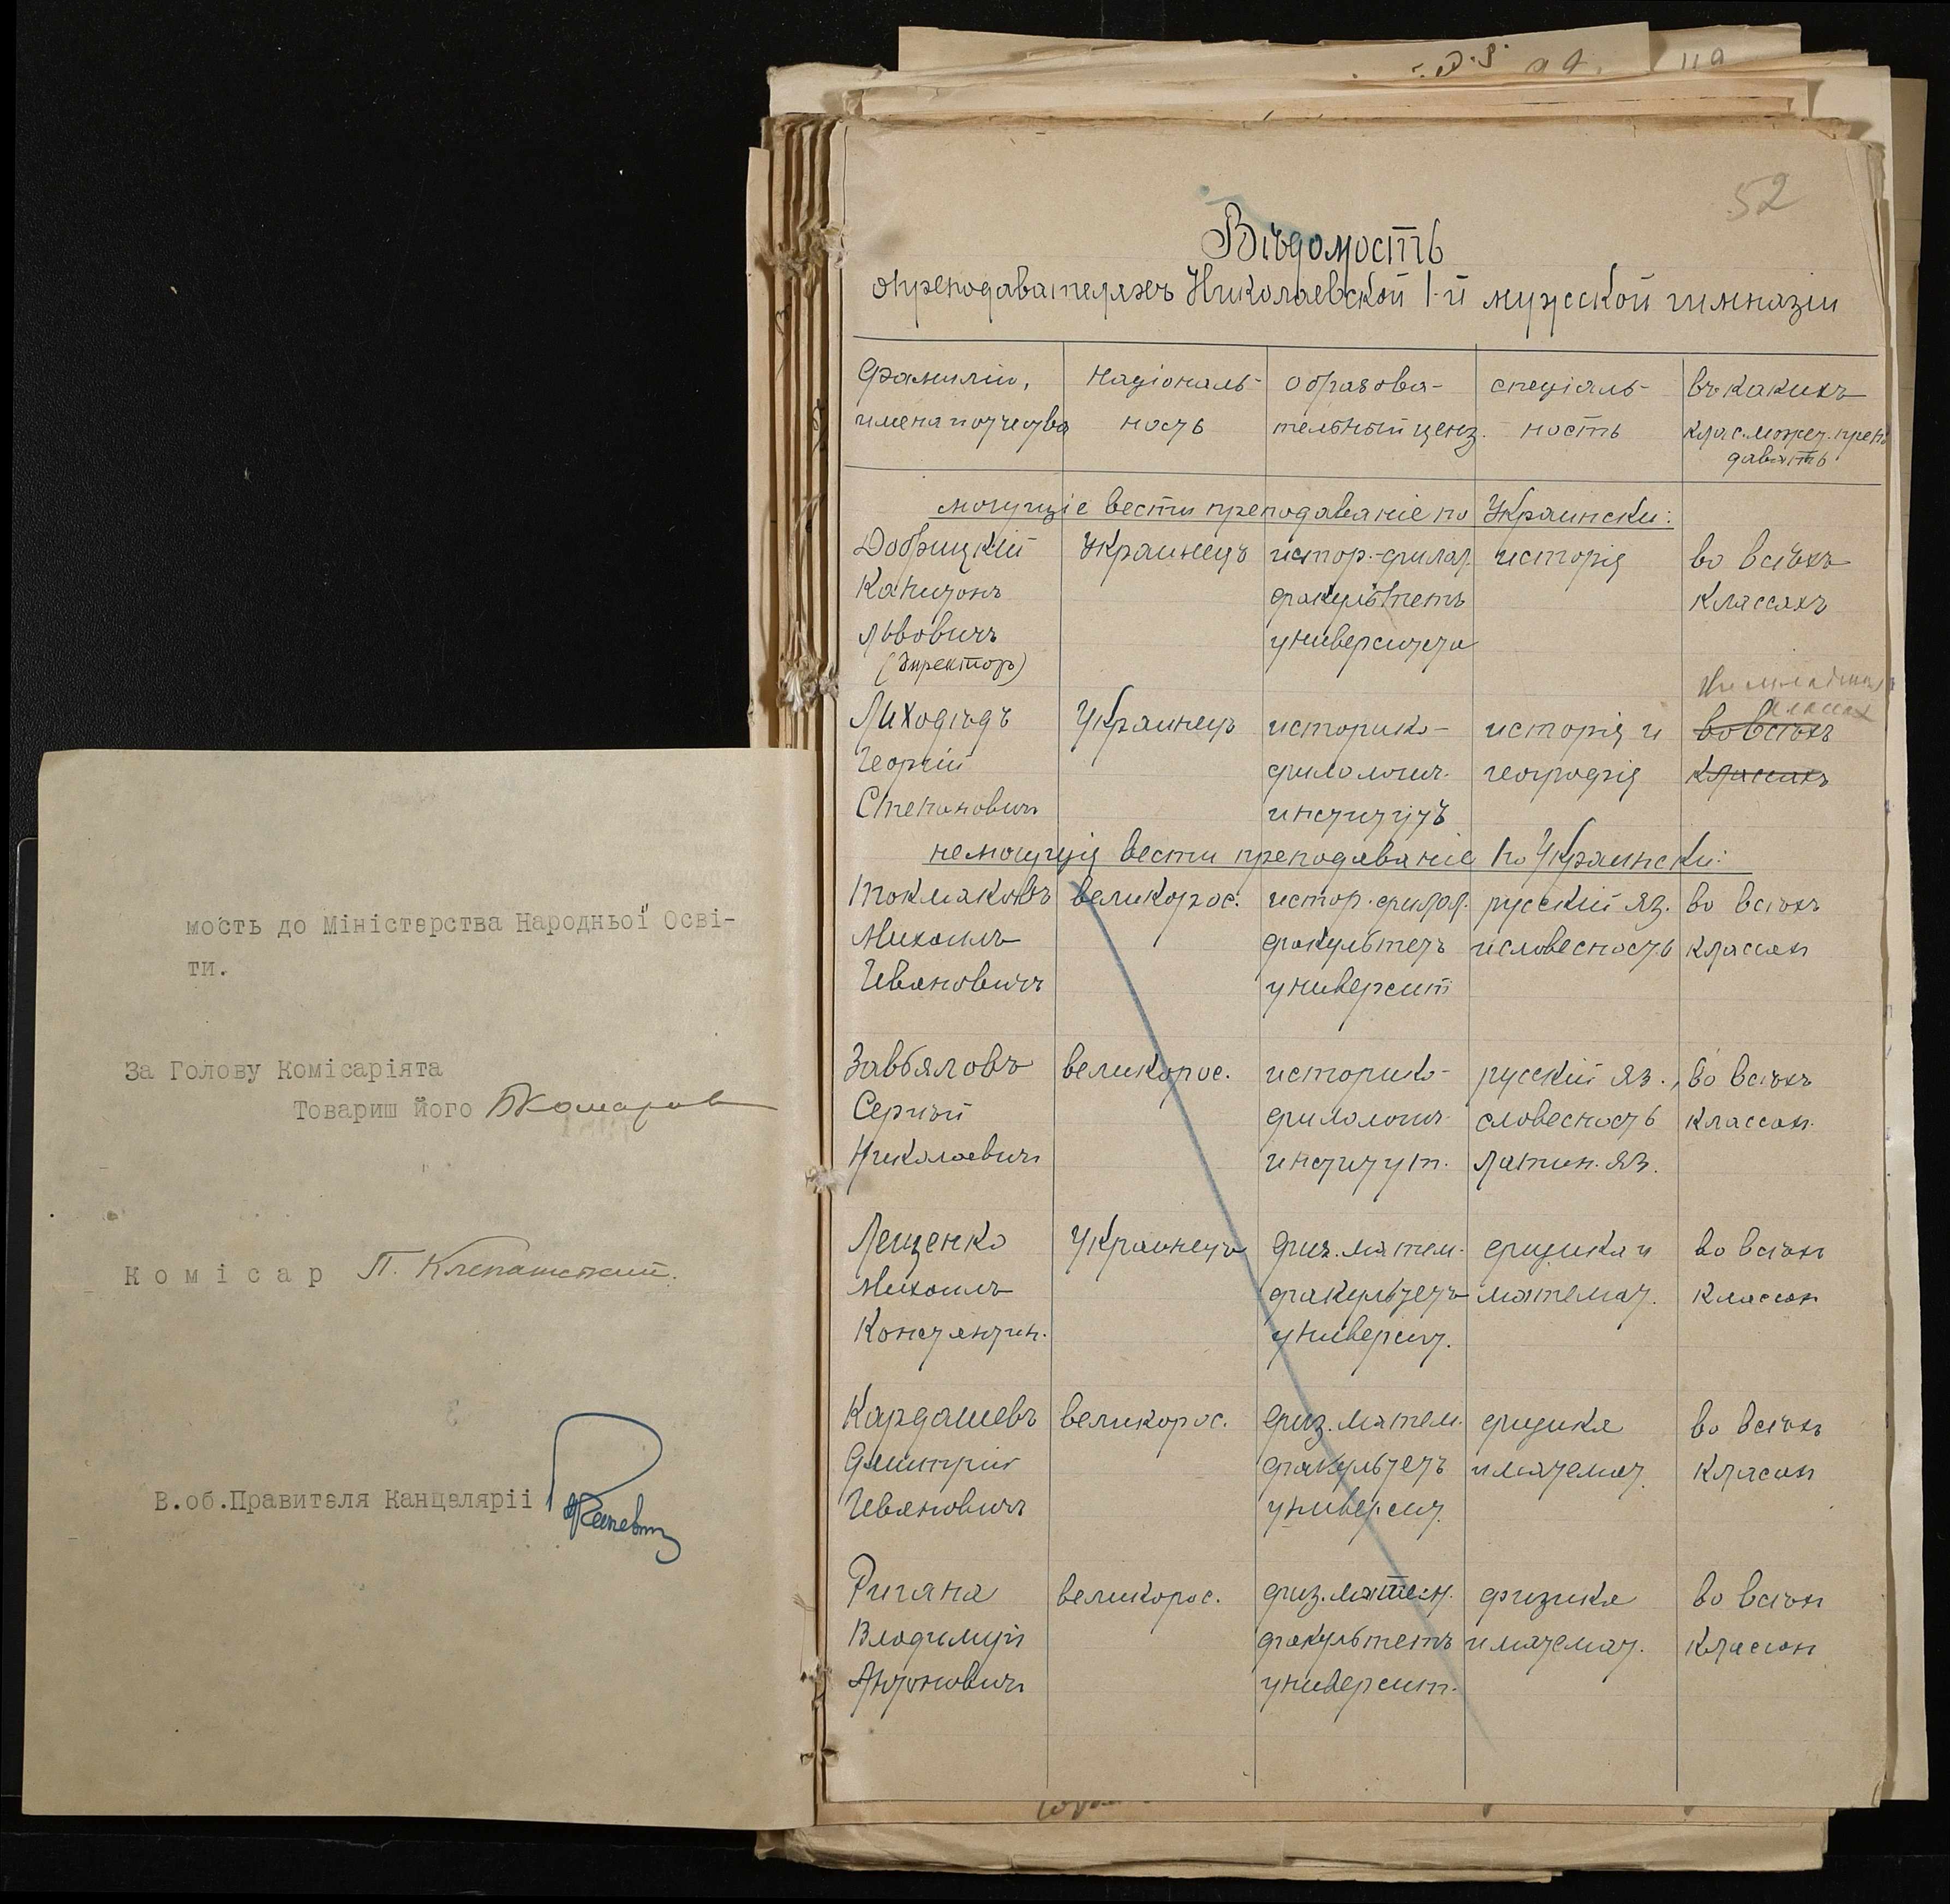 мость до Міністерства Народньої Осві-
ти.
За Голову Комісаріята
Товариш його БКомаров
Комісар П. Клепатский.
В.об.Правителя Канцеляріі
52
Вѣдомость
о преподавателяхъ Николаевской 1-й мужской гимназіи
Фамиліи, націоналъ- образова- спеціаль- въ какихъ
имена и отчества ность тельный ценз. ность клас. может. препо
давать
могущіе вести преподаваніе по Украински:
Добрицкій Украинецъ истор.-филол. исторія во всѣхъ
Капитонъ факультетъ классахъ
Львовичъ университета
(директоръ)
классах
Лиходѣдъ Украинецъ историко- исторія и во всѣхъ
Георгій филологич. географія классахъ
Степановичъ институтъ
немогущія вести преподаваніе по Украински:
Токмаковъ великорос. истор. филол. русскій яз. во всѣхъ
Михаилъ факультетъ и словесность классах
Ивановичъ университ
Завьяловъ великорос. историко- русскій яз., во всѣхъ
Сергѣй филологич. словесность классах.
Николаевич институт. латин. яз.
Лещенко Украинецъ физ. матем. физика и во всѣх
Михаилъ факультетъ математ. классах
Константин. университ.
Кардашевъ великорос. физ. матем. физика во всѣхъ
Димитрій факультетъ и математ. класах
Ивановичъ университ.
Ригана великорос. физ. матем. физика во всѣх
Владимір факультетъ и математ. классах
Антонович университ.